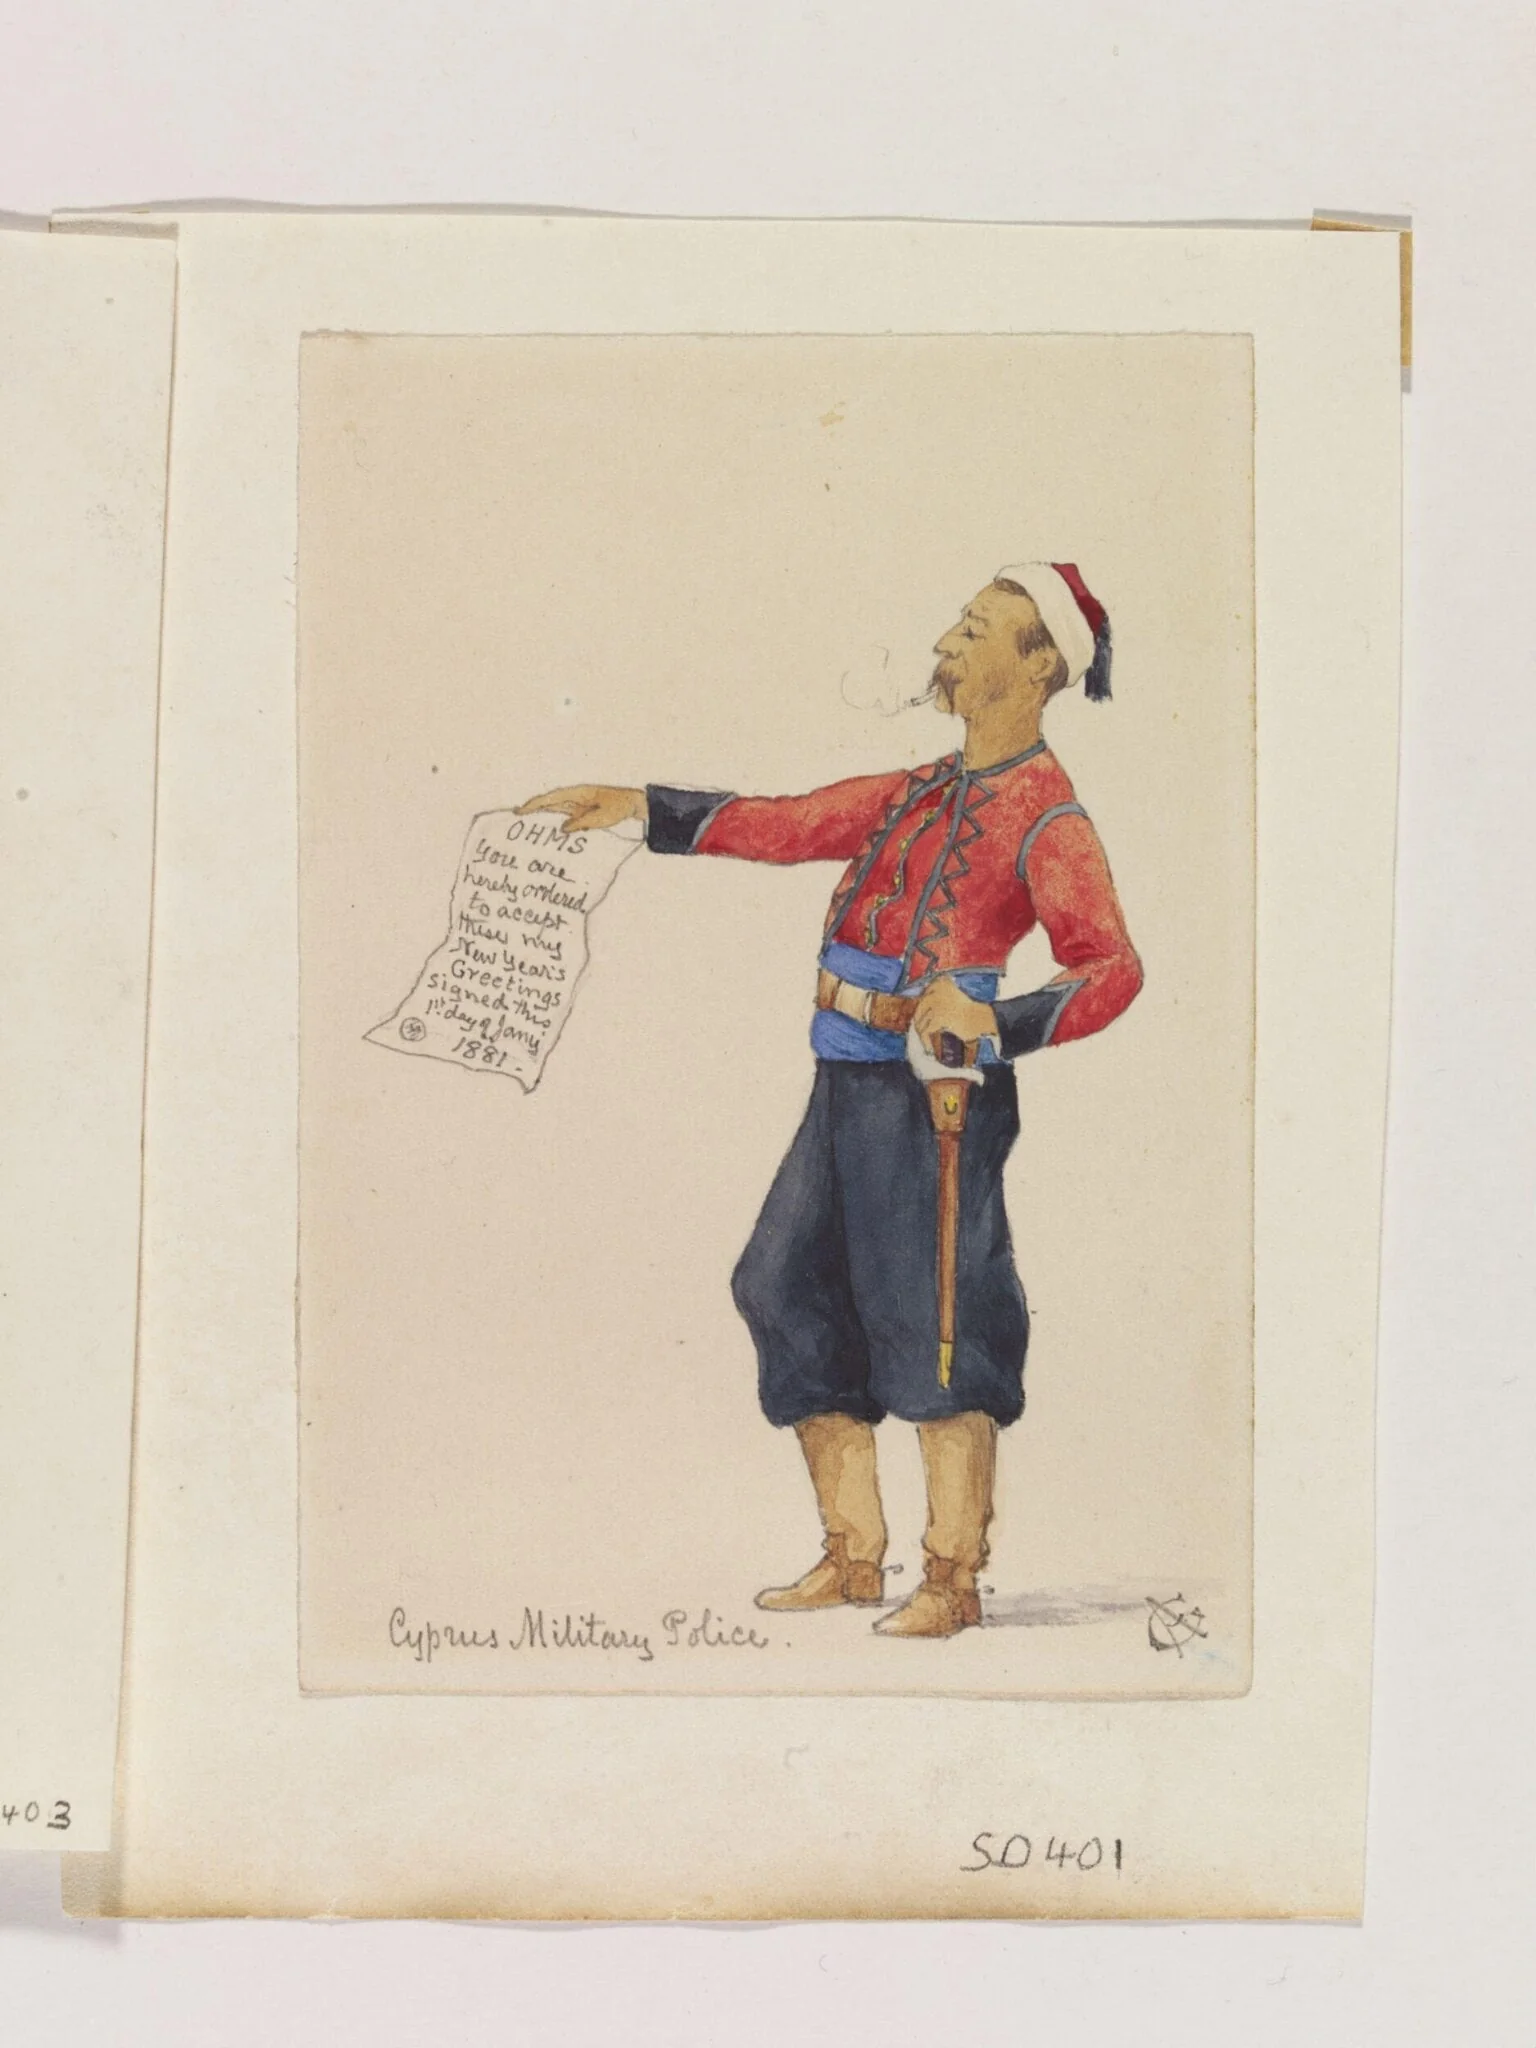 OHMS
You are
hereby ordered
to accept
these my
New Year's
Greetings
signed this
1st day of Jany
1881.
Cyprus Military Police.
403
SD401